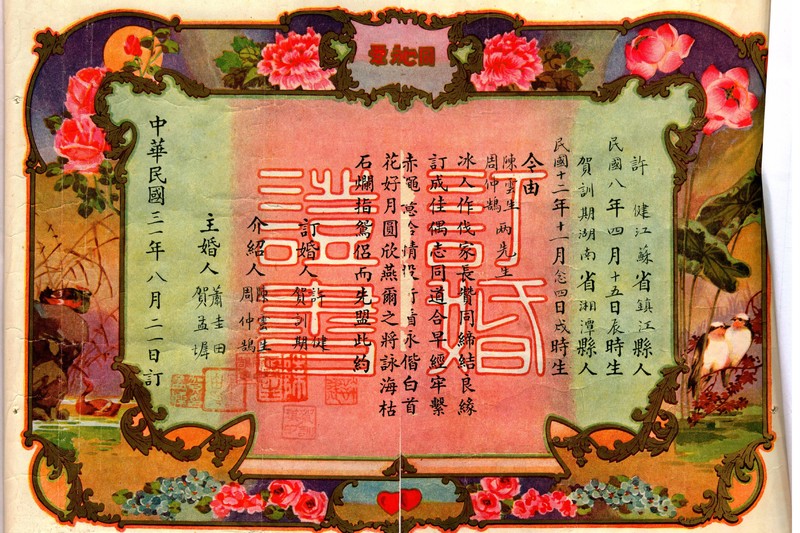 訂婚證書
許 健江蘇省鎮江縣人
民國八年四月十五日辰時生
賀訓期湖南省湘潭縣人
民國十二年十一月念四日戌時生
今由
陳雲生
周仲鵠
两先生
冰人作伐家長贊同締結良緣
訂成佳偶志同道合早經牢繫
赤繩意合情投行看永偕白首
花好月圓欣燕爾之將詠海枯
石爛指鴛侶而先盟此約
訂婚人
許 健
賀訓期
介紹人
陳雲生
周仲鵠
主婚人
蕭圭田
賀孟墀
中華民國三十一年八月二十一日訂